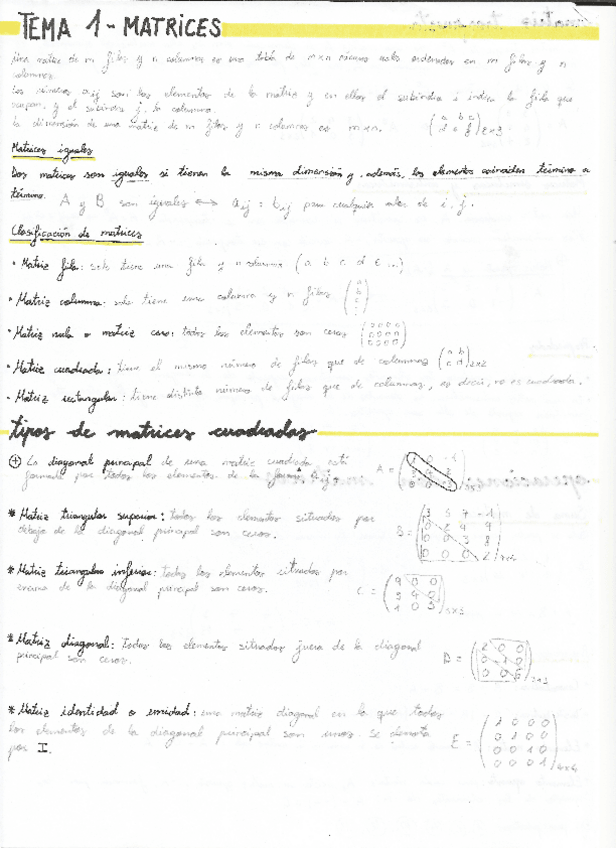 TEMA 1 - MATRICES
Una matriz de m filas y n columnas es una tabla de m×n números reales ordenados en m filas y n
columnas.
Los números aij son los elementos de la matriz y en ellos el subíndice i indica la fila que
ocupan, y el subíndice j, la columna.
La dimensión de una matriz de m filas y n columnas es m×n.
Matrices iguales
Dos matrices son iguales si tienen la misma dimensión y, además, los elementos coinciden término a
término. A y B son iguales ⟷ aij = bij para cualquier valor de i, j.
Clasificación de matrices
· Matriz fila: solo tiene una fila y n columnas (a b c d e ...)
· Matriz columna: solo tiene una columna y n filas
· Matriz nula o matriz cero: todos los elementos son ceros
· Matriz cuadrada: tiene el mismo número de filas que de columnas (a b c d)2×2
· Matriz rectangular: tiene distinto número de filas que de columnas, es decir, no es cuadrada.
tipos de matrices cuadradas
La diagonal principal de una matriz cuadrada está
formada por todos los elementos de la forma A =
* Matriz triangular superior: todos los elementos situados por
debajo de la diagonal principal son ceros.
* Matriz triangular inferior: todos los elementos situados por
encima de la diagonal principal son ceros. C =
* Matriz diagonal: todos los elementos situados fuera de la diagonal
principal son ceros. D =
* Matriz identidad o unidad: una matriz diagonal en la que todos
los elementos de la diagonal principal son unos. Se denota
por I.
E =
1 0 0 0
0 1 0 0
0 0 1 0
0 0 0 1 4×4